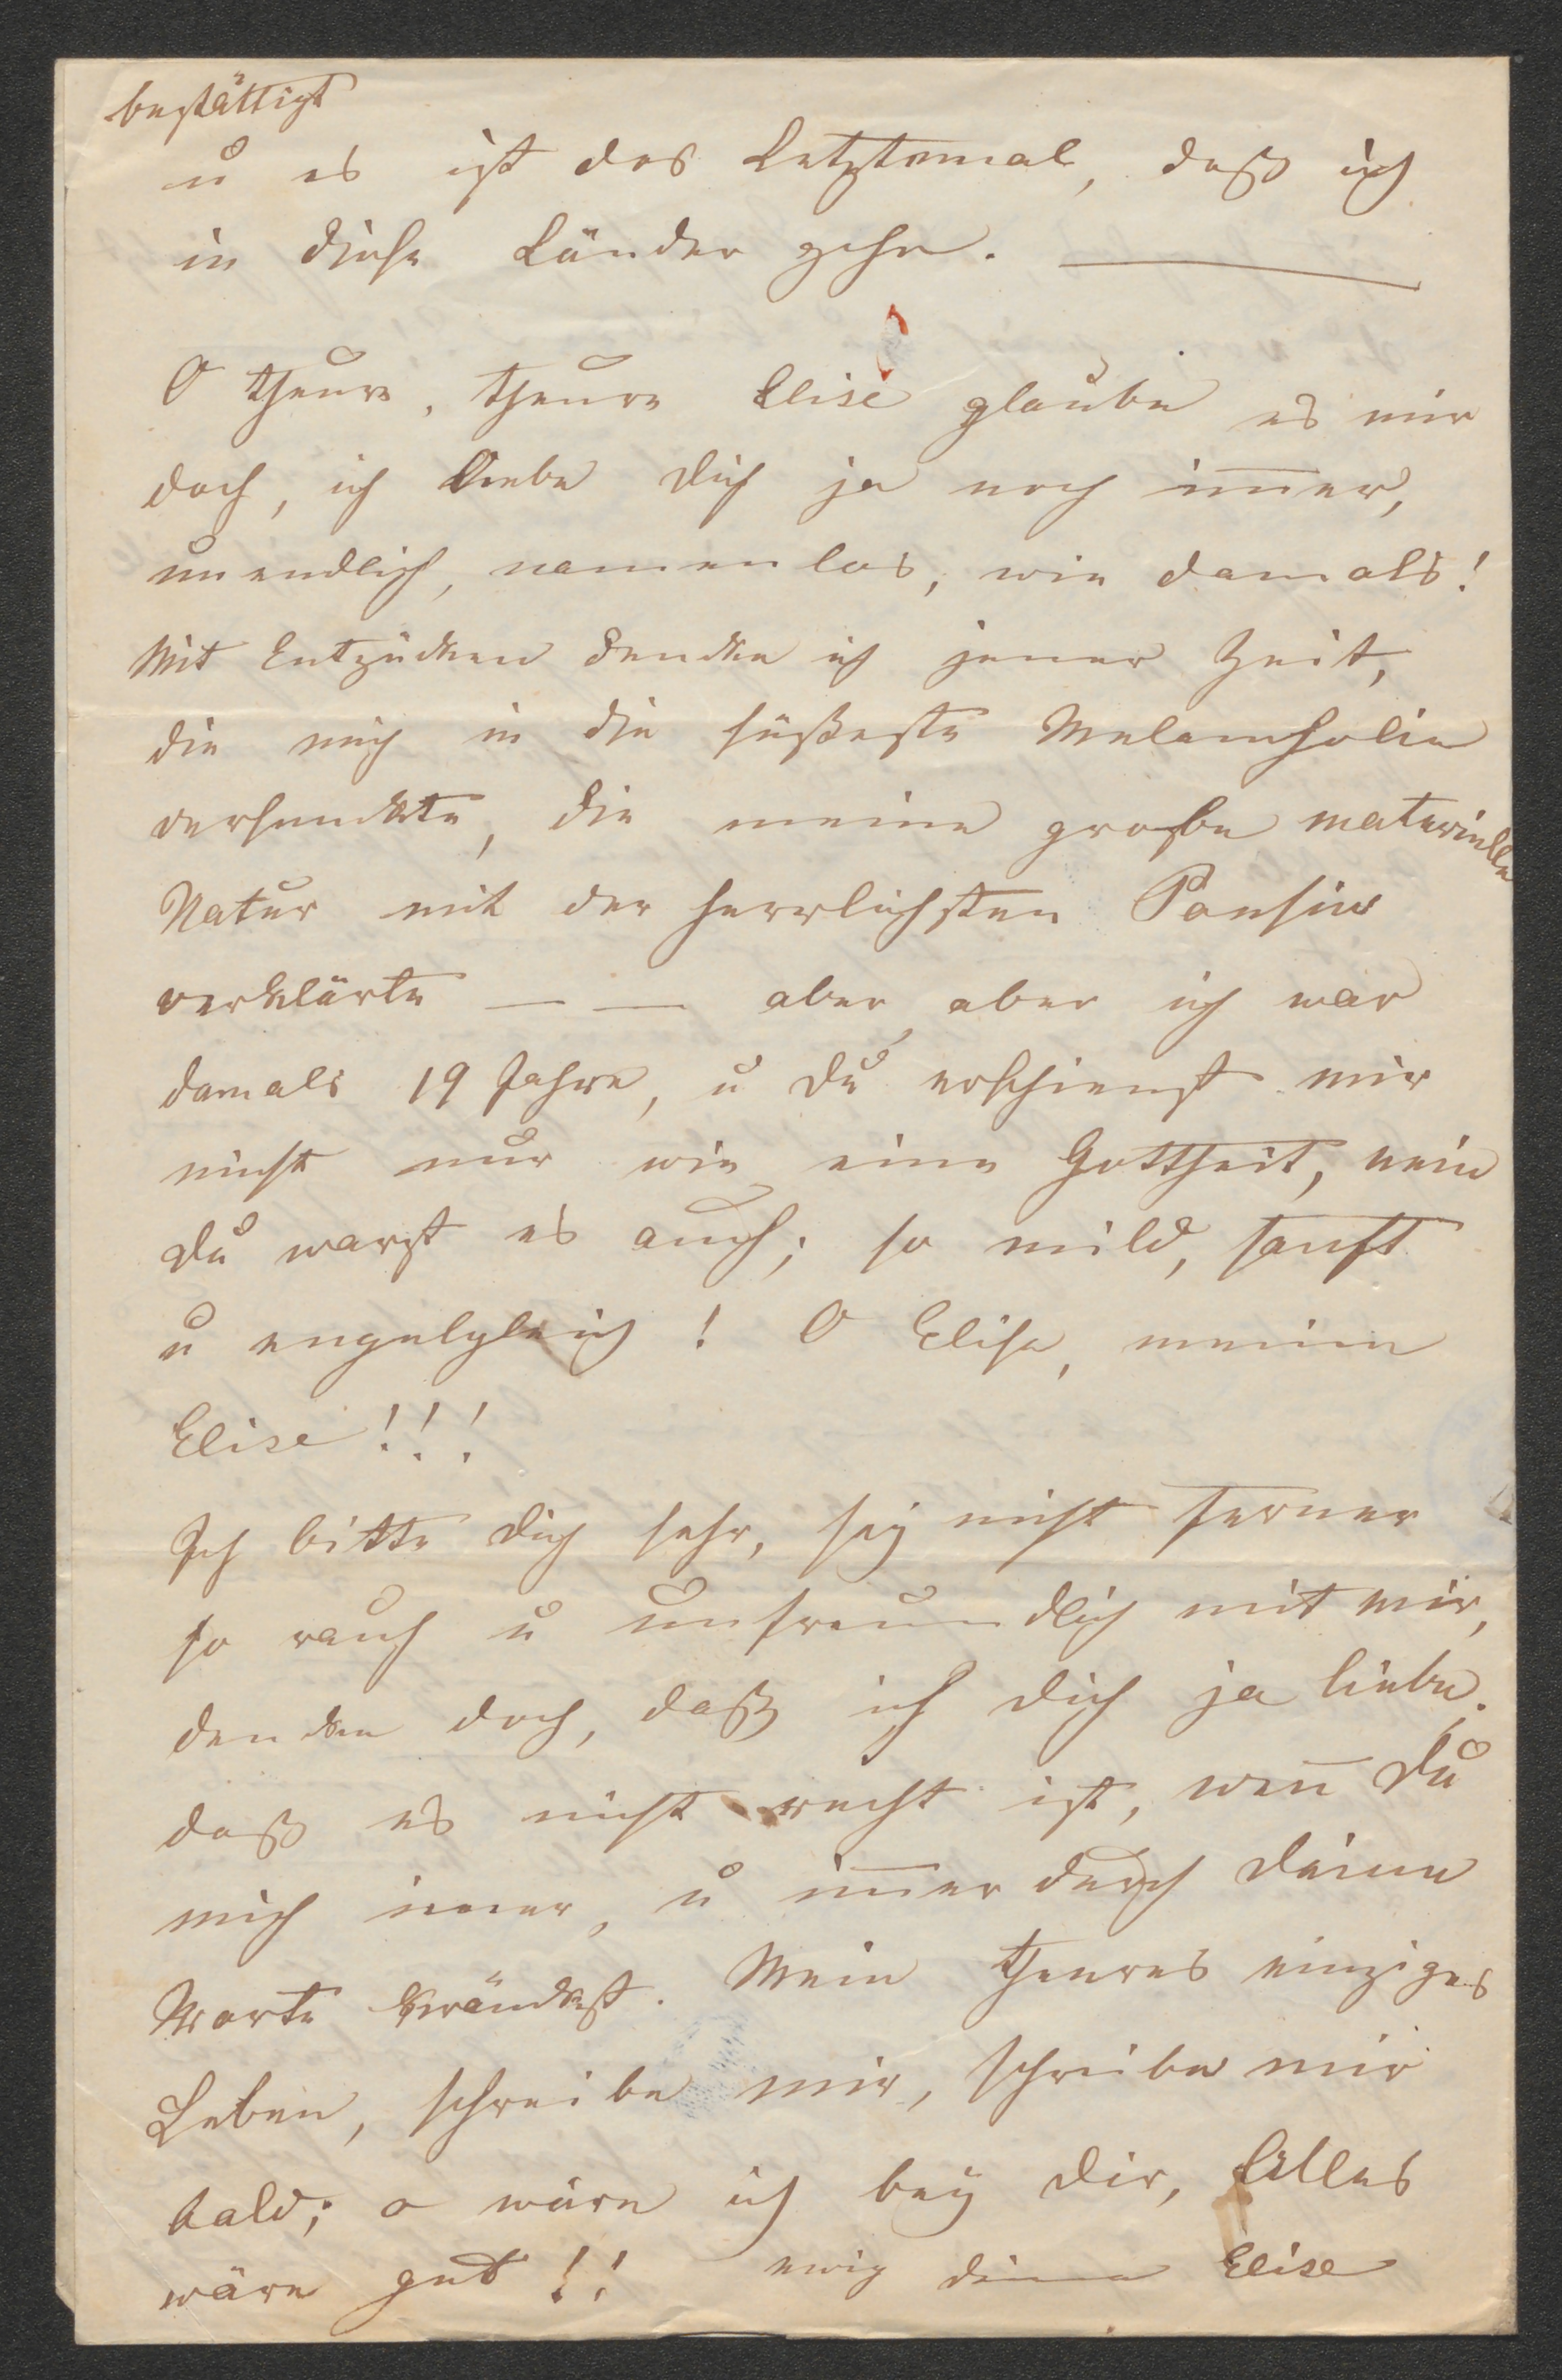 bestättigt
u es ist das Letztemal, daß ich
in diese Länder gehe. ———
O theure, theure Elise glaube es mir
doch, ich liebe dich ja noch im̅er,
unendlich, namenlos, wie damals!
Mit Entzücken dencke ich jener Zeit,
die mich in die süßeste Melancholie
versenckte, die meine grobe materielle
Natur mit der herrlichsten Poesie
verklärte — — aber, aber ich war
damals 19 Jahre, u du erschienst mir
nicht nur wie eine Gottheit, nein
du warst es auch; so mild, sanft
u engelgleich! O Elise, meine
Elise!!!
Ich bitte dich sehr, sey nicht ferner
so rauh u unfreundlich mit mir,
dencke doch, daß ich dich ja liebe,
daß es nicht recht ist, wen̅ du
mich immer, u im̅er durch deine
Worte kränckst. Mein theures einziges
Leben, schreibe mir, schreibe mir
bald; o wäre ich bey dir, Alles
wäre gut!! ewig deine Elise